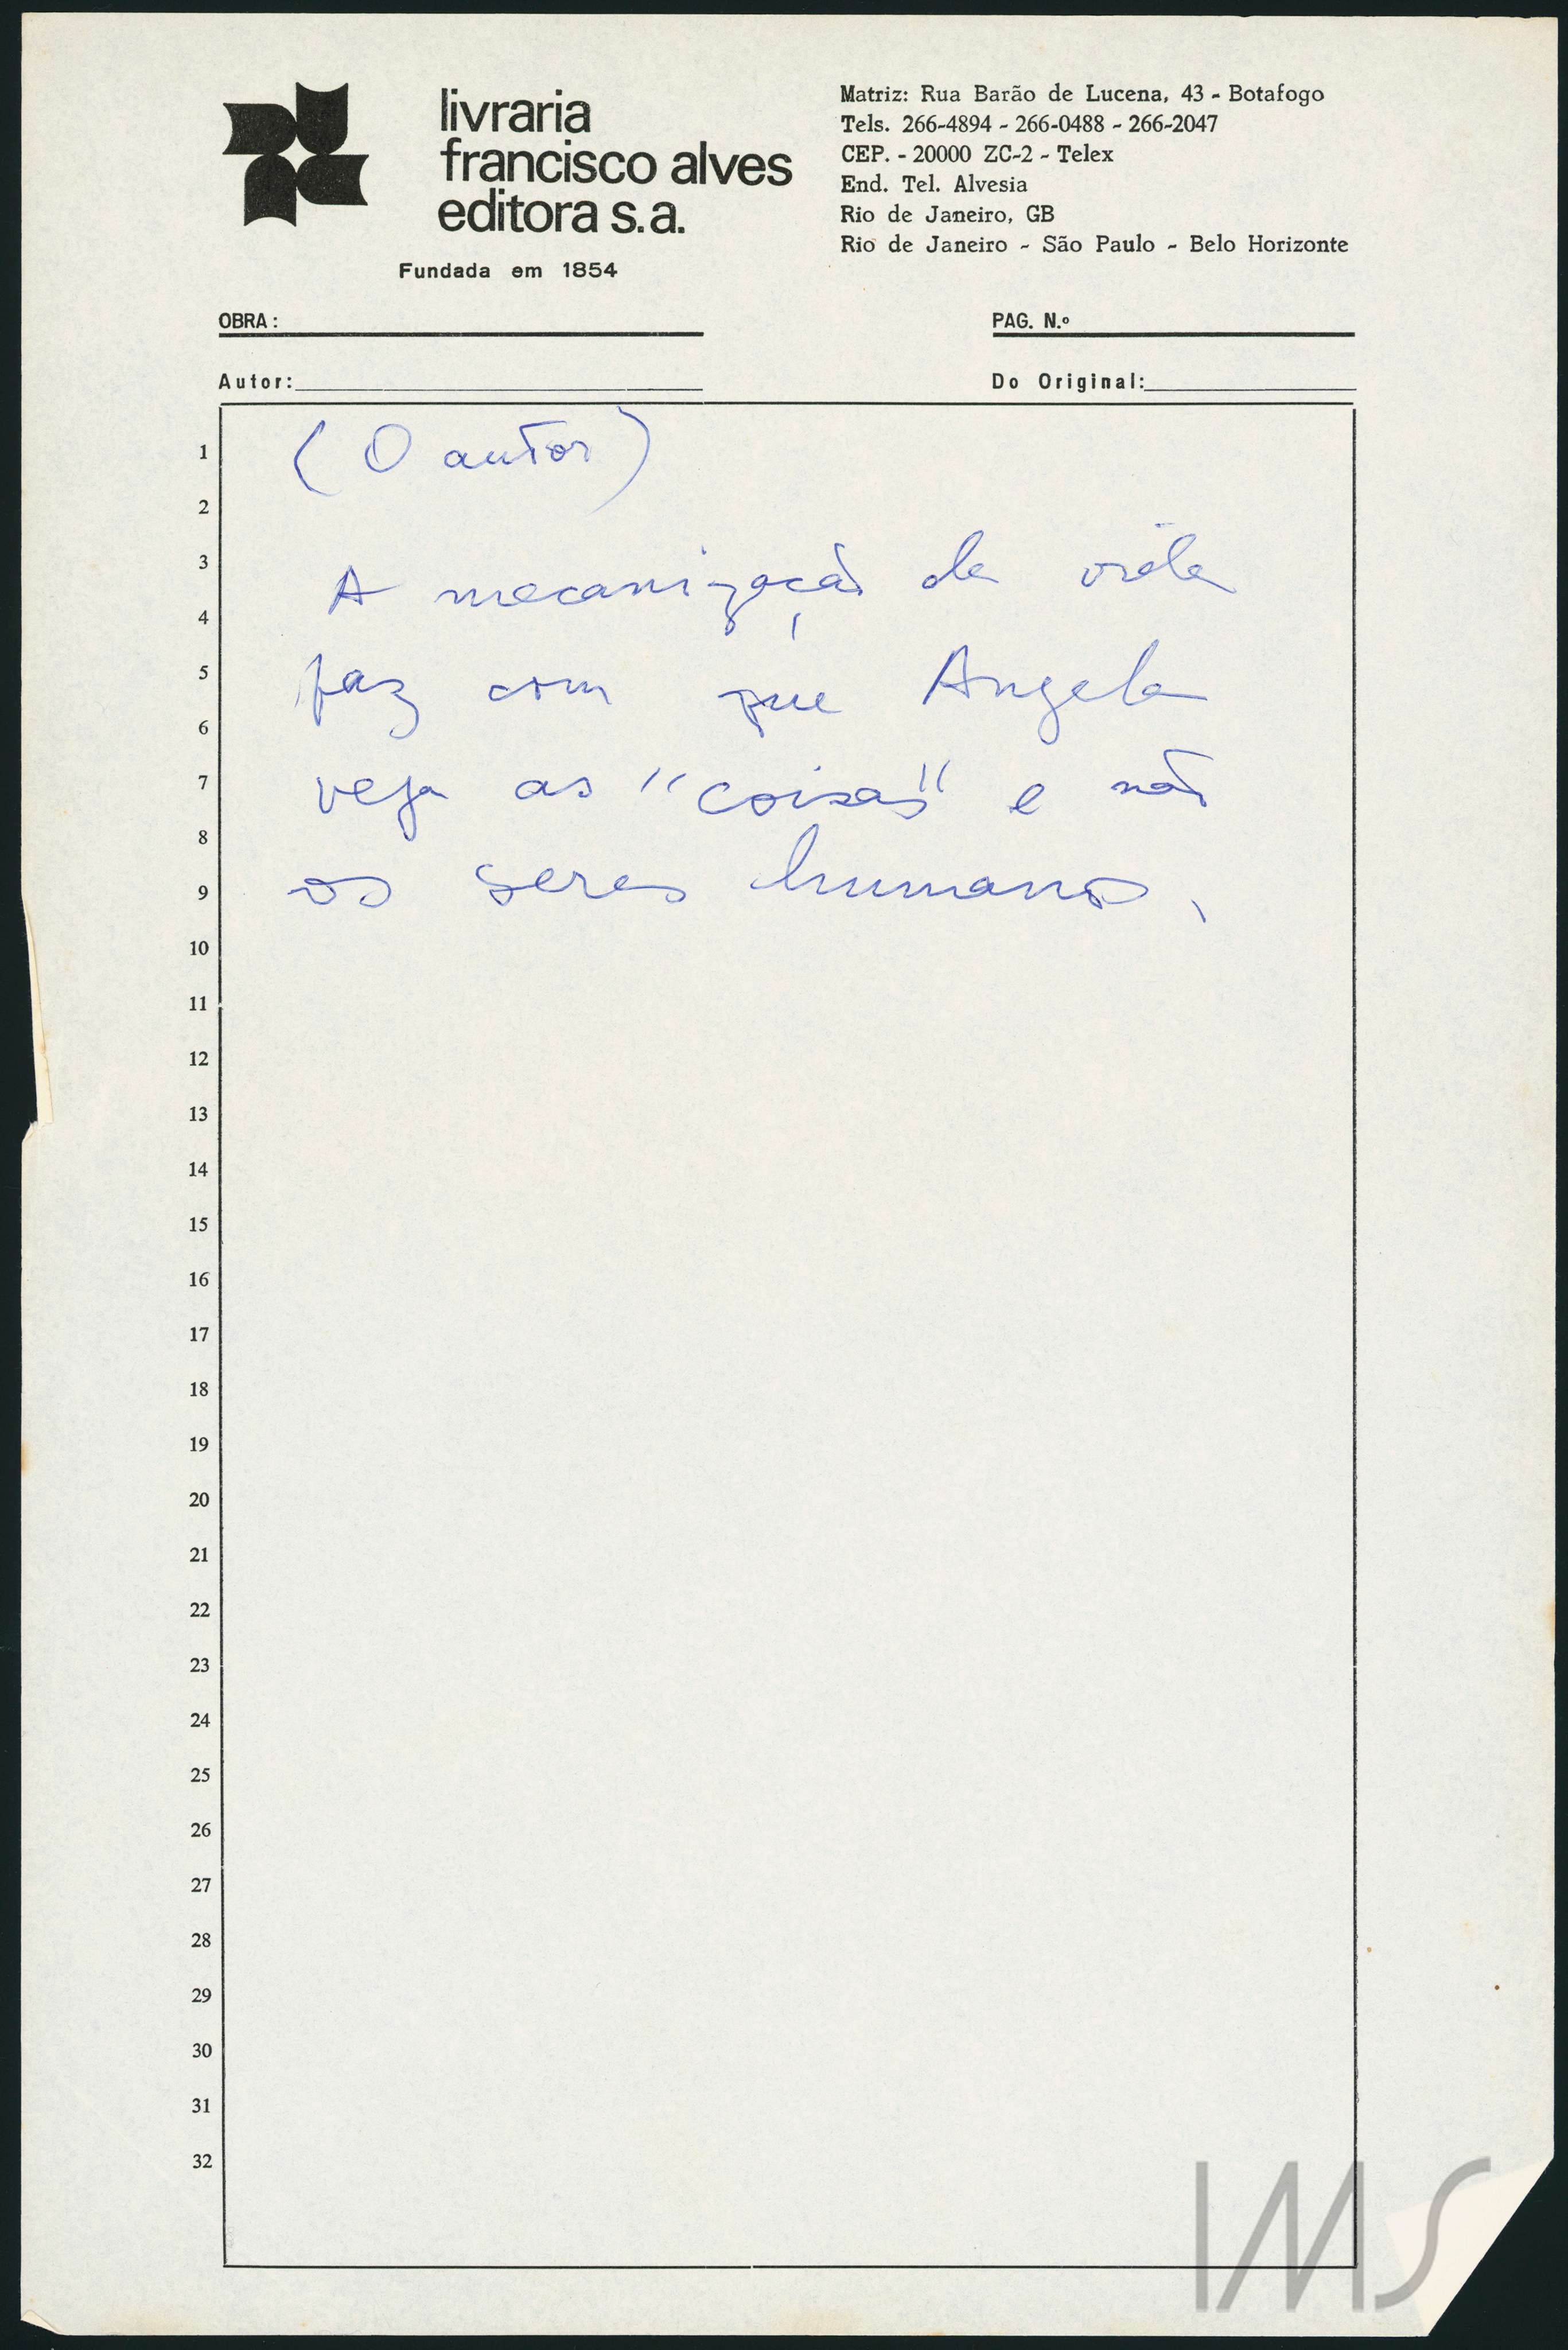 livraria
francisco alves
editora s.a.
Fundada em 1854
Matriz: Rua Barão de Lucena, 43 - Botafogo
Tels. 266-4894 - 266-0488 - 266-2047
CEP. - 20000 ZC-2 - Telex
End. Tel. Alvesia
Rio de Janeiro, GB
Rio de Janeiro - São Paulo - Belo Horizonte
OBRA:
PAG. N.º
Autor:
Do Original:
1
(O autor)
2
3
A mecanização da vida
4
5
faz com que Angela
6
7
veja as "coisas" e não
8
9
os seres humanos.
10
11
12
13
14
15
16
17
18
19
20
21
22
23
24
25
26
27
28
29
30
31
32
IMS